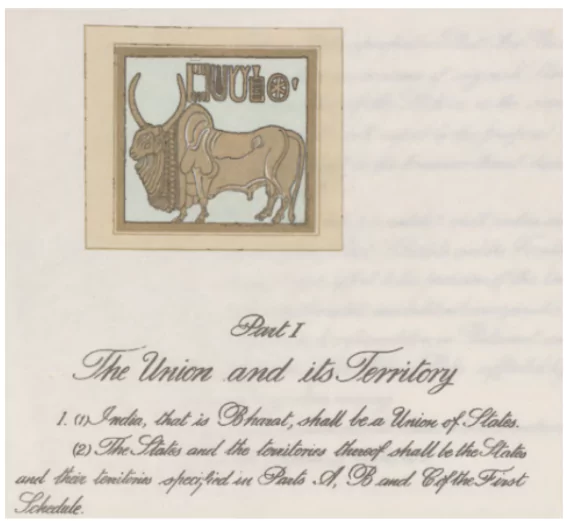 Part I
The Union and its Territory
1. (1) India, that is Bharat, shall be a Union of States.
(2) The States and the territories thereof shall be the States
and their territories specified in Parts A, B and C of the First
Schedule.